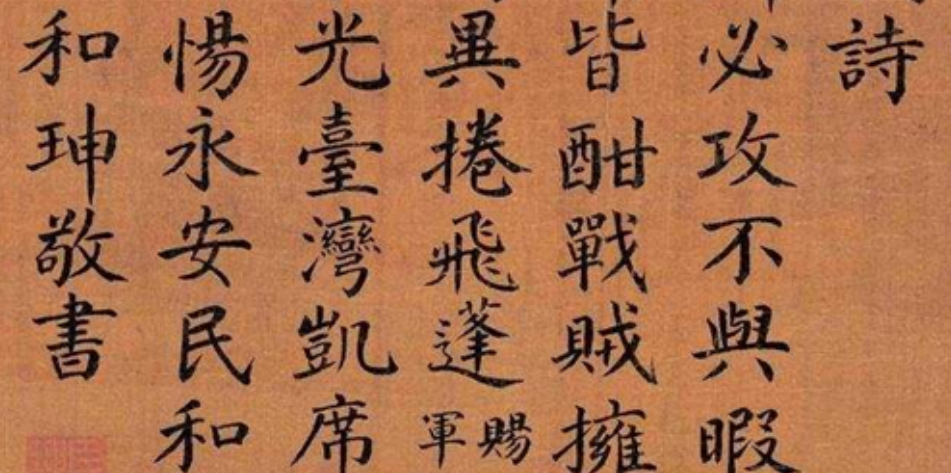 詩
必攻不與暇
皆酣戰賊擁
異捲飛蓬賜軍
光臺灣凱席
惕永安民和
和珅敬書